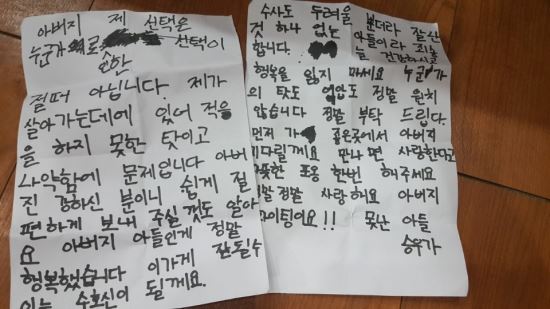 아버지 제 선택은
누군가 선택이
절때 아닙니다. 제가
살아가는데에 있어 적응
을 하지 못한 탓이고
나약함에 문제입니다 아버
진 강하신 분이니 쉽게 절
편하게 보내 주실 껏도 알아
요 아버지 아들인게 정말
행복했습니다 이가게
수호신이 될게요.
수사도 두려울 분더라 잘난
것 하나 없는 아들이라 죄송
합니다. 늘 건강하시고
행복을 잃지 마세요 누군가
의 탓도 억압도 정말 원치
않습니다 정말 부탁 드립니다.
먼저 가 좋은곳에서 아버지
기다릴게요 만나면 사랑한다고
포옹 한번 해주세요
정말 사랑해요 아버지
못난 아들
승우가